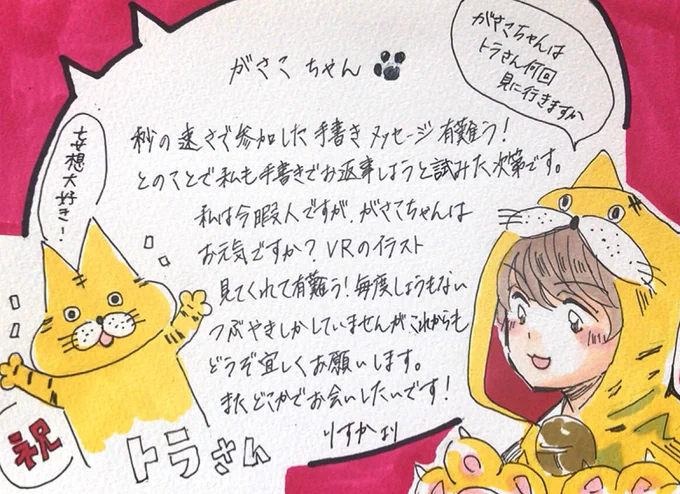 がさこちゃん
がさこちゃんは
トラさん何回
見に行きますか
秒の速さで参加した手書きメッセージ有難う!
とのことで私も手書きでお返事しようと試みた次第です。
私は今暇人ですが、がさこちゃんは
お元気ですか?VRのイラスト
見てくれて有難う!毎度しょうもない
つぶやきしかしていませんがこれからも
どうぞ宜しくお願いします。
またどこかでお会いしたいです!
りすかより
妄想大好きー!
祝
トラさん